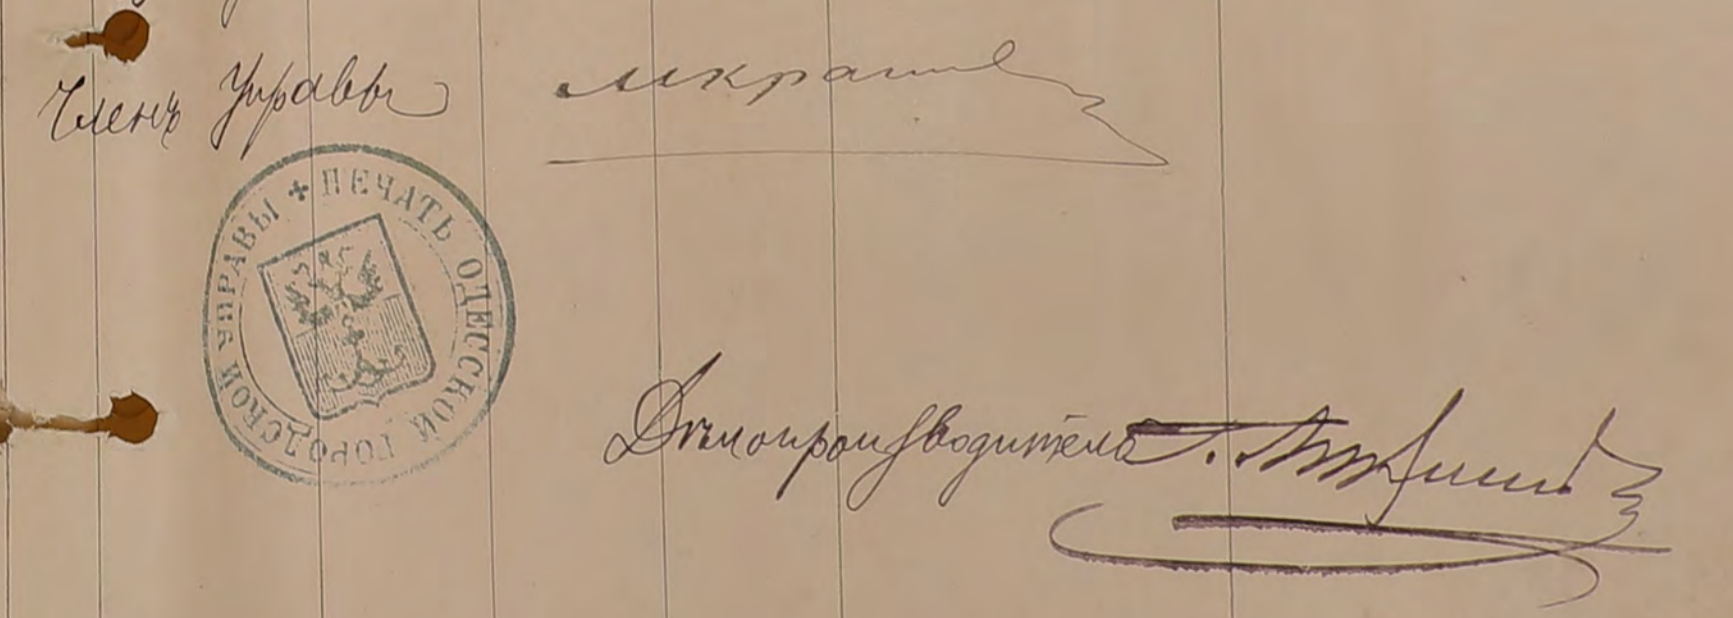 Членъ Управы
ПЕЧАТЬ ОДЕССКОЙ ГОРОДСКОЙ УПРАВЫ
Дѣлопроизводитель